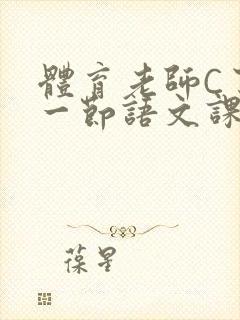 體育老師C了
一節語文課
葆星